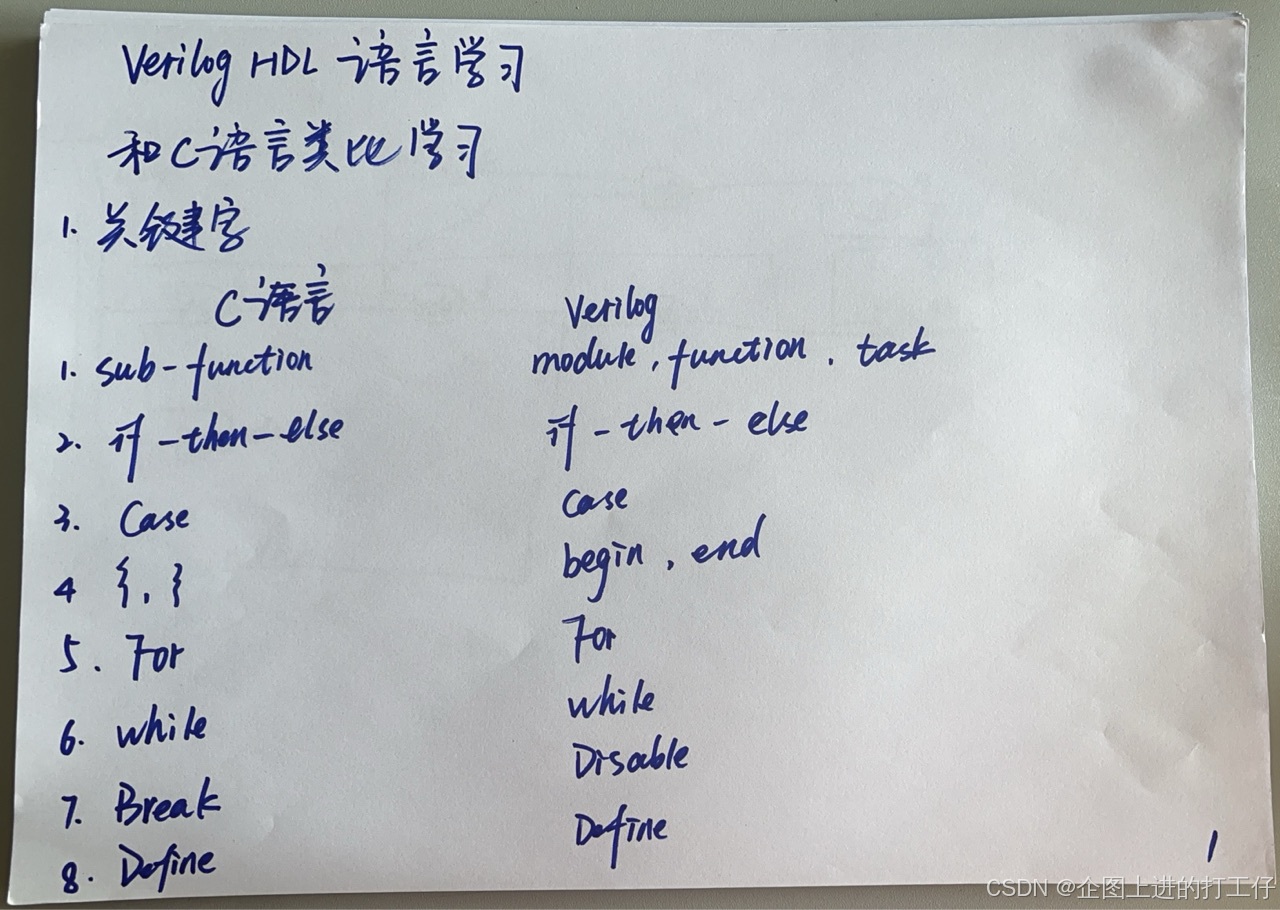 Verilog HDL 语言学习
和C语言类比学习
1. 关键字
C语言 Verilog
1. sub-function module, function, task
2. if-then-else if-then-else
3. Case Case
4 {, } begin, end
5. For For
6. while while
7. Break Disable
8. Define Define
1
CSDN @企图上进的打工仔